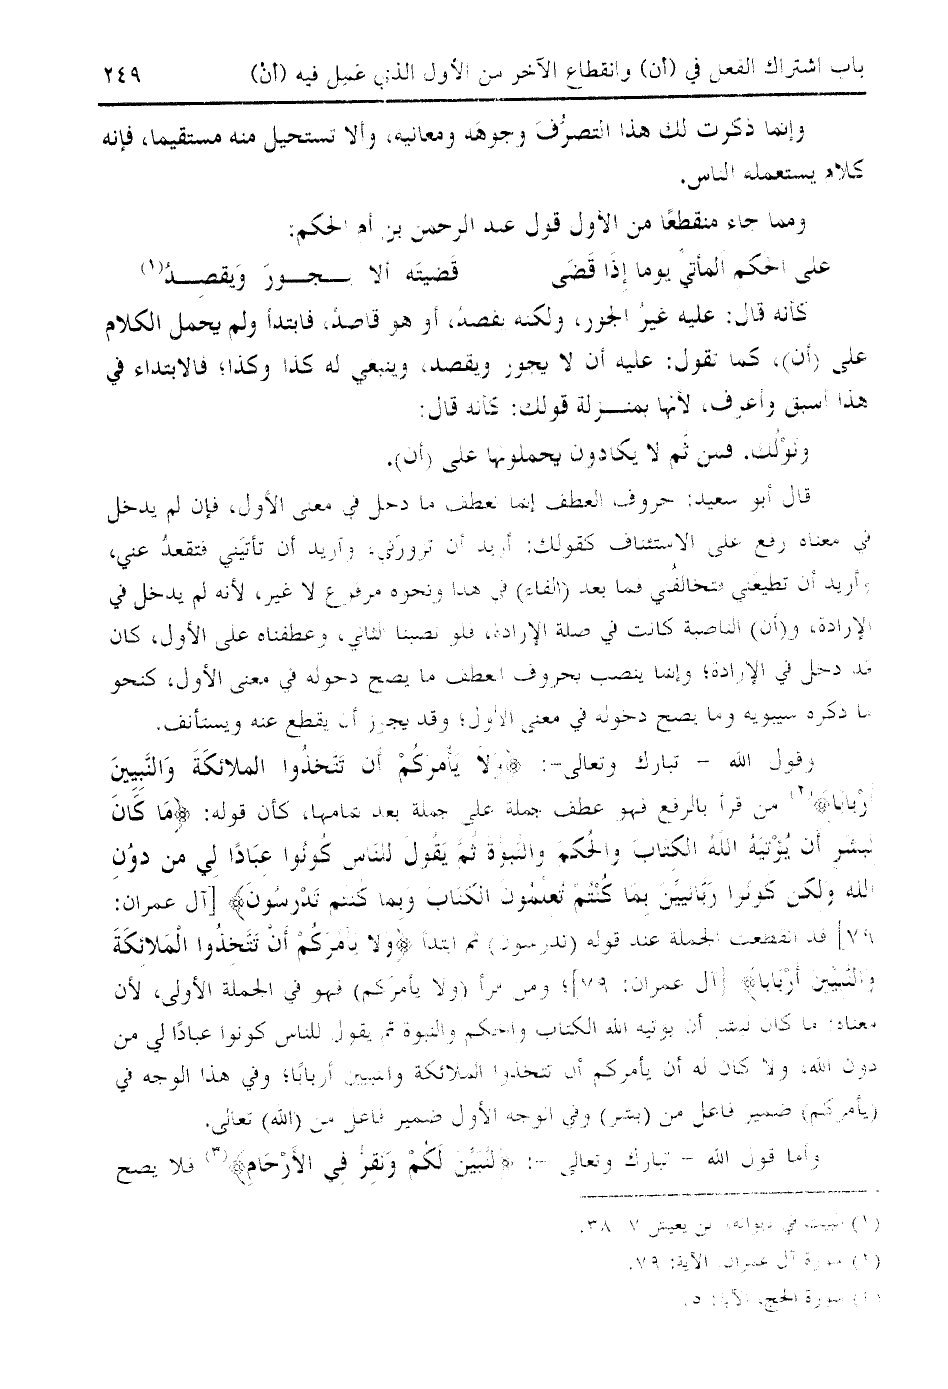 باب اشتراك الفعل في (أن) وانقطاع الآخر من الأول الذي عَمِل فيه (أنْ) ٢٤٩
وإنما ذكرت لك هذا التصرُّفَ وجوهَه ومعانيه، وألا تستحيل منه مستقيما، فإنه
كلام يستعمله الناس.
ومما جاء منقطعًا من الأول قول عبد الرحمن بن أم الحكم:
على الحكم المأتيِّ يوما إذَا قَضَى قَضيتَه ألا يـجـورَ وَيقصـدُ(١)
كأنه قال: عليه غيرُ الجور، ولكنه يقصدُ، أو هو قاصدٌ، فابتدأ ولم يحمل الكلام
على (أن)، كما تقول: عليه أن لا يجور ويقصد، وينبغي له كذا وكذا؛ فالابتداء في
هذا أسبق وأعرف، لأنها بمنـزلة قولك: كأنه قال:
ونَوْلُك. فمن ثَم لا يكادون يحملونها على (أن).
قال أبو سعيد: حروف العطف إنما تعطف ما دخل في معنى الأول، فإن لم يدخل
في معناه رفع على الاستئناف كقولك: أريد أن تزورَني، وأريد أن تأتيَني فتقعدُ عني،
وأريد أن تطيعَني فتخالفُني فما بعد (الفاء) في هذا ونحوه مرفوع لا غير، لأنه لم يدخل في
الإرادة، و(أن) الناصبة كانت في صلة الإرادة، فلو نصبنا الثاني، وعطفناه على الأول، كان
قد دخل في الإرادة؛ وإنما ينصب بحروف العطف ما يصح دخوله في معنى الأول، كنحو
ما ذكره سيبويه وما يصح دخوله في معنى الأول؛ وقد يجوز أن يقطع عنه ويستأنف.
وقول الله – تبارك وتعالى–: ﴿وَلَا يَأْمرَكُمْ أَن تَتَّخذُوا الملائكَةَ وَالنَّبِيينَ
أَرْبَابًا﴾(٢) من قرأ بالرفع فهو عطف جملة على جملة بعد تمامها، كأن قوله: ﴿مَا كَانَ
لبَشَر أَن يُؤْتيَهُ اللهُ الكتَابَ والحُكمَ والنبوةَ ثمَّ يَقُولَ للنَاس كُونُوا عبَادًا لي من دوُن
الله ولكن كُونُوا رَبَّانيِّينَ بمَا كُنْتُمْ تَعلَمُونَ الكتَابَ وبمَا كنتم تَدْرسُونَ﴾ [آل عمران:
٧٩] قد انقطعت الجملة عند قوله (تدرسون) ثم ابتدأ ﴿ولا يأمُرَكُمْ أَنْ تَتَّخذُوا الْمَلائكَةَ
والنَّبيِّينَ أَرْبَابا﴾ [آل عمران: ٧٩]؛ ومن قرأ (ولا يأمرَكم) فهو في الجملة الأولى، لأن
معناه: ما كان لبشر أن يوتيه الله الكتاب والحكم والنبوة ثم يقول للناس كونوا عبادًا لي من
دون الله، ولا كان له أن يأمركم أن تتخذوا الملائكة والنبيين أربابًا؛ وفي هذا الوجه في
(يأمركم) ضمير فاعل من (بشر) وفي الوجه الأول ضمير فاعل من (الله) تعالى.
وأما قول الله – تبارك وتعالى –: ﴿لنُبَيِّنَ لَكُمْ وَنُقِرُّ فِي الأَرْحَامِ﴾(٣) فلا يصح
(١) البيت في ديوانه، ابن يعيش ٧ ٣٨.
(٢) سورة آل عمران، الآية: ٧٩.
سورة الحج، الآية: ٥.